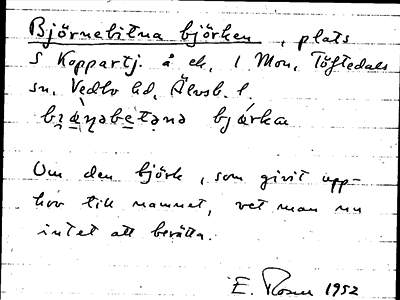 Björnebitna björken, plats
S Koppartj. å ek. 1 Mon, Töftedals
sn. Vedbo hd, Älvsb. l
bjørk
Om den björk, som givit upp-
hov till namnet, vet man nu
intet att berätta.
E. Rosen 1952